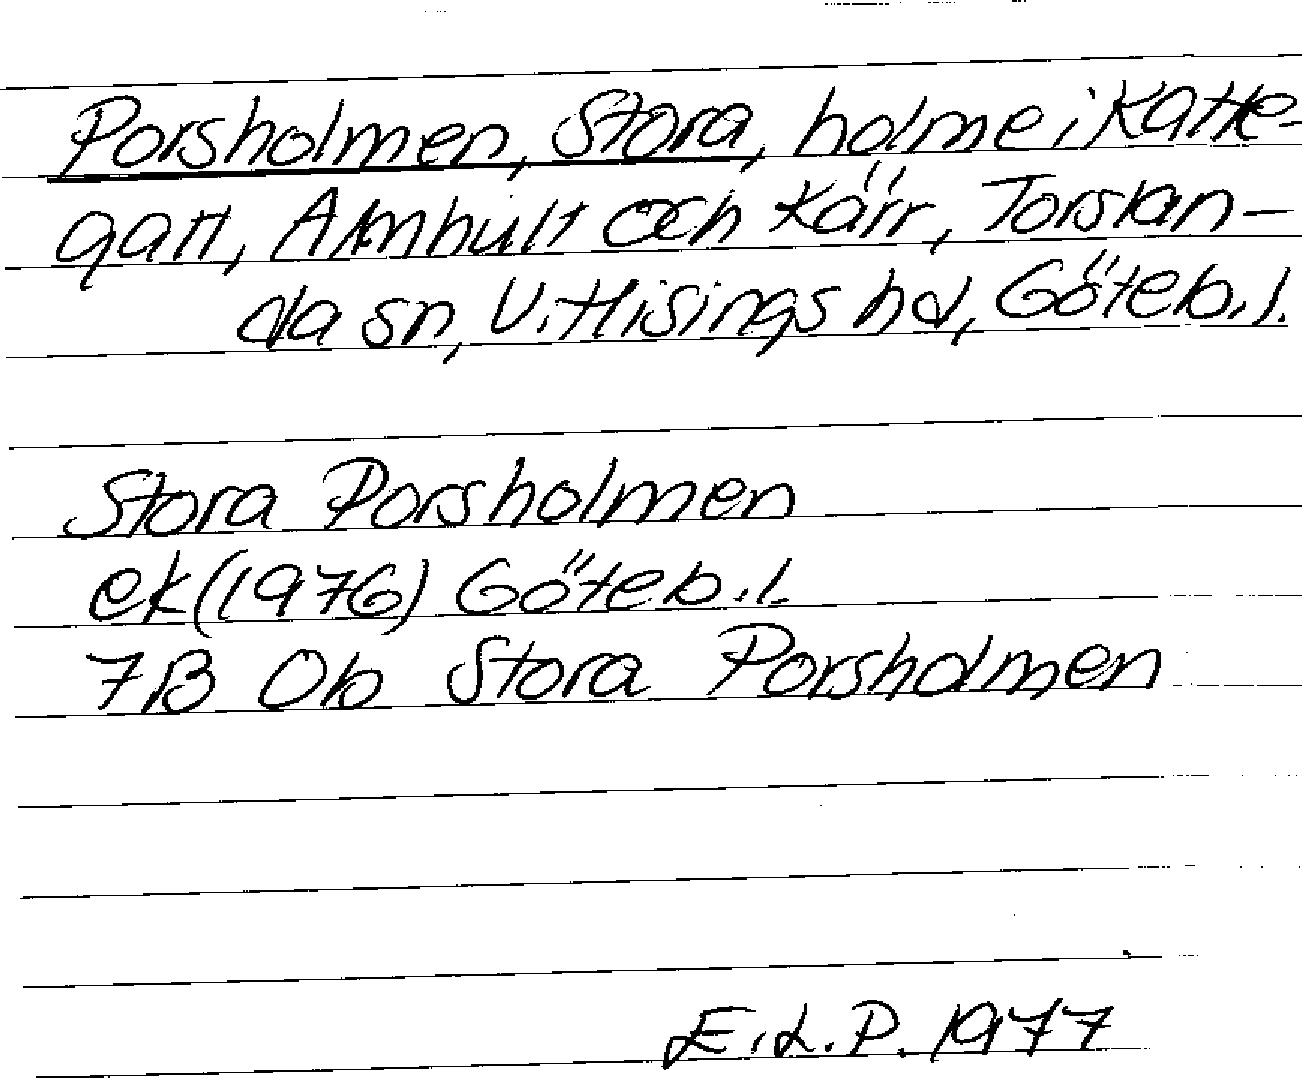 Porsholmen, Stora, holme i Katte-
gatt, Amhult och Kärr, Torslan-
da sn, V. Hisings hd, Göteb. l.
Stora Porsholmen
ek (1976) Göteb. l.
7B 0b Stora Porsholmen
E.L.P. 1977